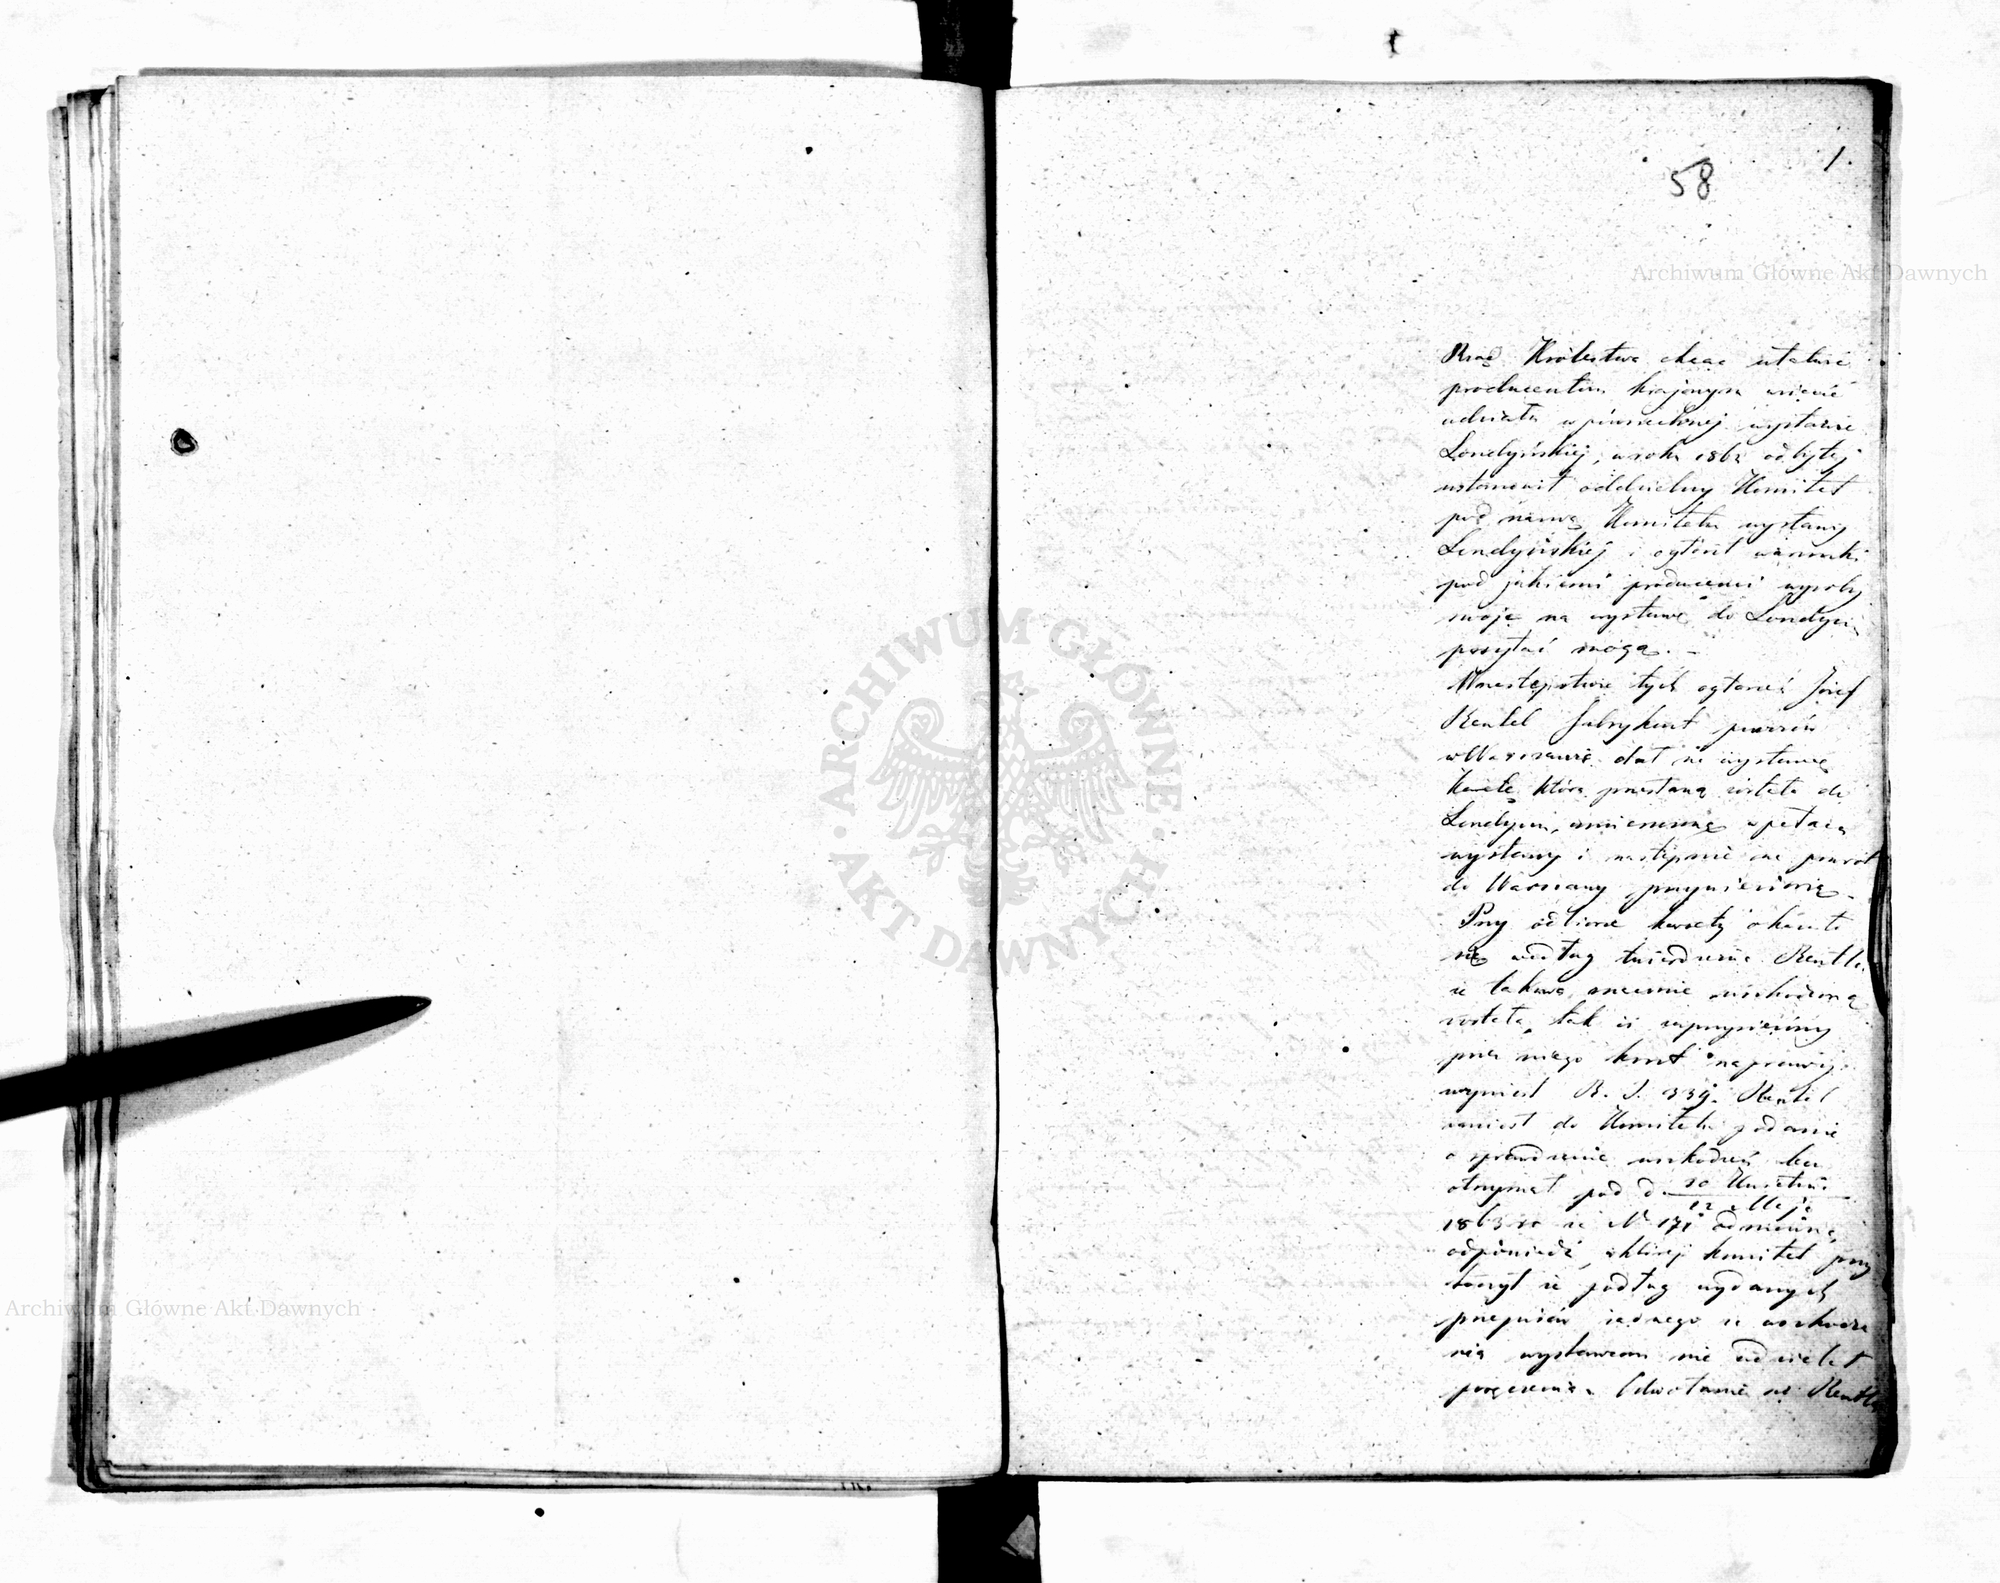 1.
58
Archiwum Główne Akt Dawnych
Rząd Królestwa chcąc ułatwić
producentom krajowym wzięcie
udziału w powszechnej wystawie
Londyńskiej, w roku 1862 odbytej
ustanowił oddzielny Komitet
pod nazwą Komitetu wystawy
Londyńskiej i ogłosił warunki
pod jakiemi producenci wyroby
swoje na wystawę do Londynu
posyłać mogą. –
W następstwie tych ogłoszeń Józef
Rentel fabrykant powozów
w Warszawie dał na wystawę
karetę która przesłaną została do
Londynu, umieszczoną w pałacu
wystawy i następnie na powrót
do Warszawy przywiezioną –
Przy odbiorze karety okazało
się według twierdzenia Rentla,
że takowa znacznie uszkodzoną
została, tak iż
przez niego koszt naprawy
wyniósł R. S. 339. Rentel
zaniósł do Komitetu żądanie
o sprawdzenie uszkodzeń lecz
otrzymał pod d. 30 Kwietnia
12 Maja
1863 ro za N 171 odmowną
odpowiedź, w której komitet przy
toczył że podług wydanych
przepisów żadnego za uszkodze
nia wystawcom nie udzielał
poręczenia. Odwołanie się Rentla
ARCHIWUM GŁÓWNE
AKT DAWNYCH
Archiwum Główne Akt Dawnych